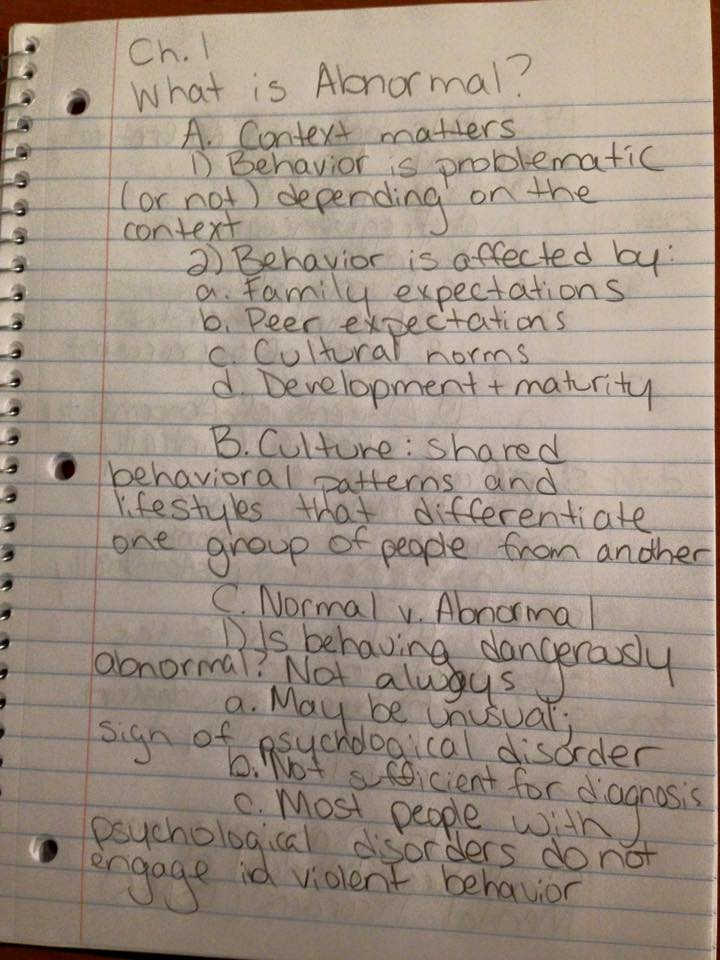 Ch. 1
What is Abnormal?
A. Context matters
1) Behavior is problematic
(or not) depending on the
context
2) Behavior is affected by:
a. Family expectations
b. Peer expectations
c. Cultural norms
d. Development + maturity
B. Culture: shared
behavioral patterns and
lifestyles that differentiate
one group of people from another
C. Normal v. Abnormal
1) Is behaving dangerously
abnormal? Not always
a. May be unusual;
sign of psychological disorder
b. Not sufficient for diagnosis
c. Most people with
psychological disorders do not
engage in violent behavior